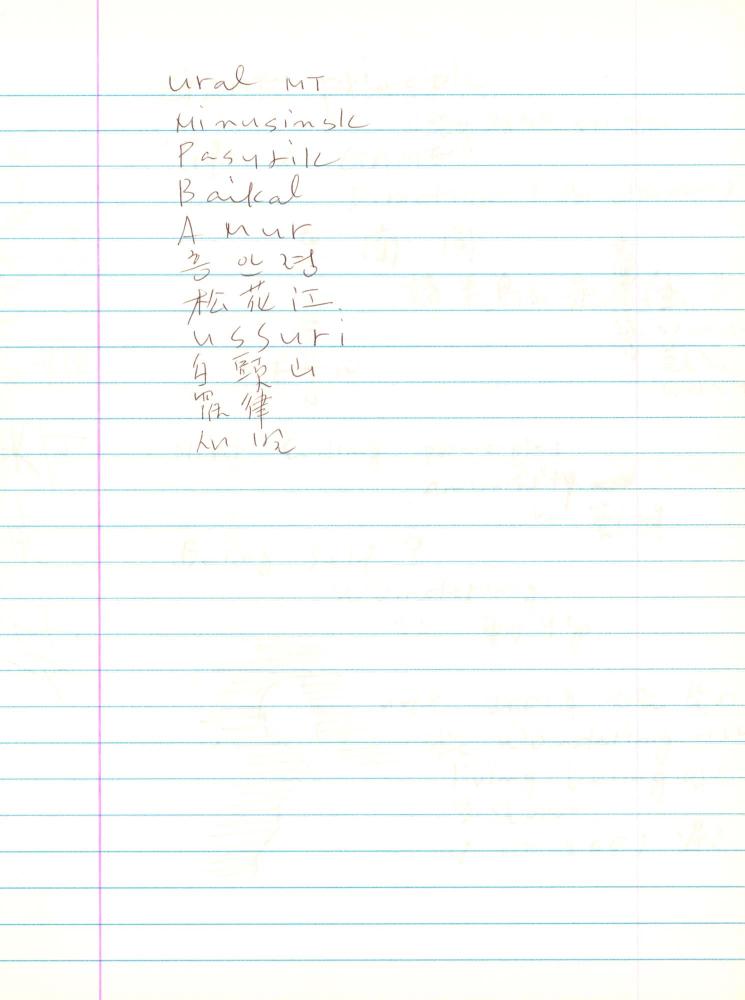 Ural MT
Minusinsk
Pasyrik
Baikal
Amur
흥안령
松花江
Ussuri
白頭山